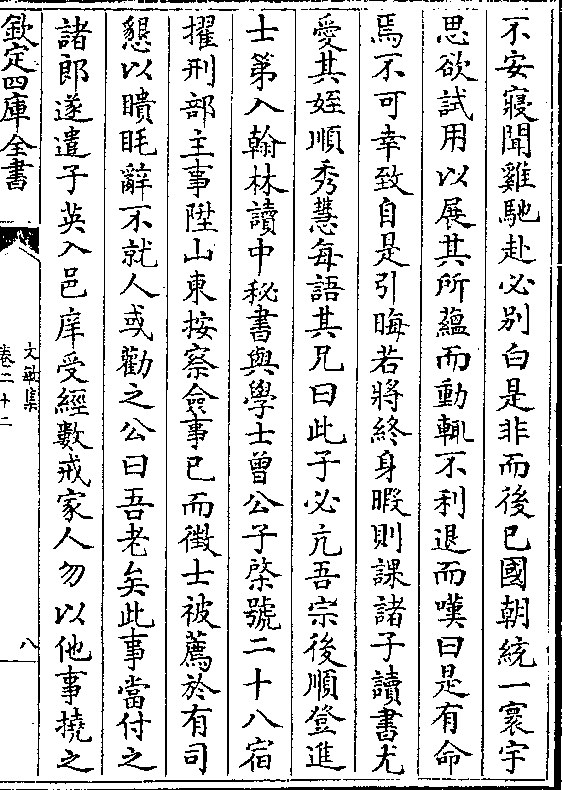 不安寢聞雞馳赴必别白是非而後已國朝統一寰宇
思欲試用以展其所藴而動輒不利退而嘆曰是有命
焉不可幸致自是引晦若將終身暇則課諸子讀書尤
愛其姪順秀慧每語其兄曰此子必亢吾宗後順登進
士第入翰林讀中秘書與學士曾公子棨號二十八宿
擢刑部主事陞山東按察僉事已而徵士被薦於有司
懇以瞶眊辭不就人或勸之公曰吾老矣此事當付之
諸郎遂遣子英入邑庠受經數戒家人勿以他事撓之
欽定四庫全書
文敏集
卷二十二
八